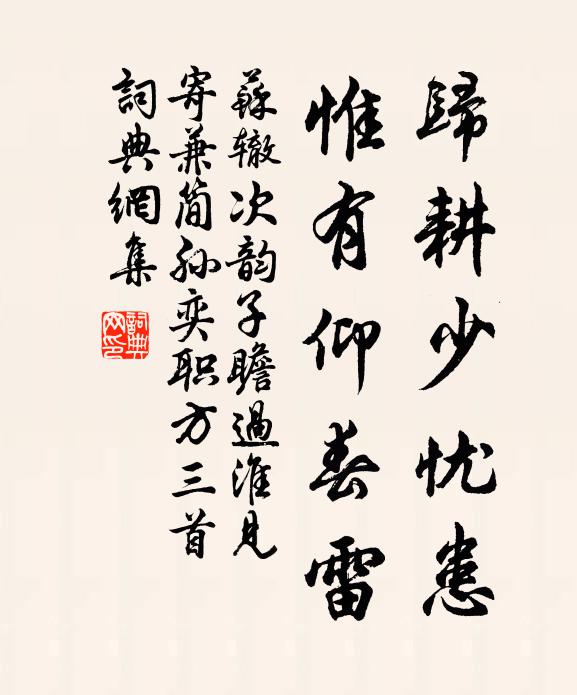 歸耕少忧患
惟有仰春雷
蘇辙次韵子瞻過淮見
寄兼简孙奕职方三首
詞典網集
詞典网印